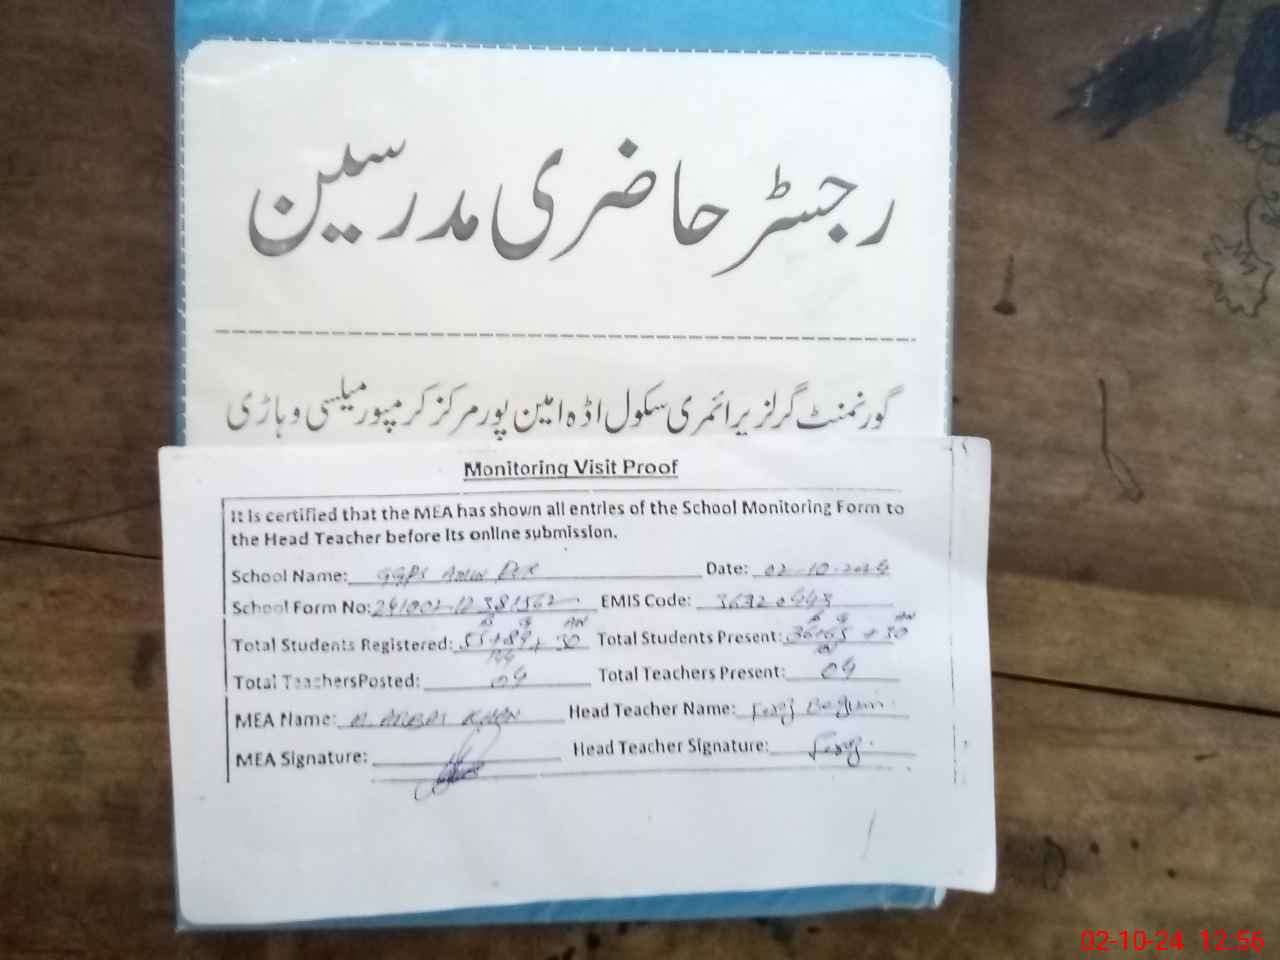 رجسٹر حاضری مدرسین
گورنمنٹ گرلز پرائمری سکول اڈہ امین پور مرکز کرمپور میلسی وہاڑی
Monitoring Visit Proof
It is certified that the MEA has shown all entries of the School Monitoring Form to
the Head Teacher before its online submission.
School Name: GGPS Amin Pur Date: 02-10-2024
School Form No: EMIS Code:
Total Students Registered: 55+89+30 Total Students Present: +30
Total TeachersPosted: 04 Total Teachers Present: 04
MEA Name: Khan Head Teacher Name: Begum
MEA Signature: Head Teacher Signature:
02-10-24 12:56